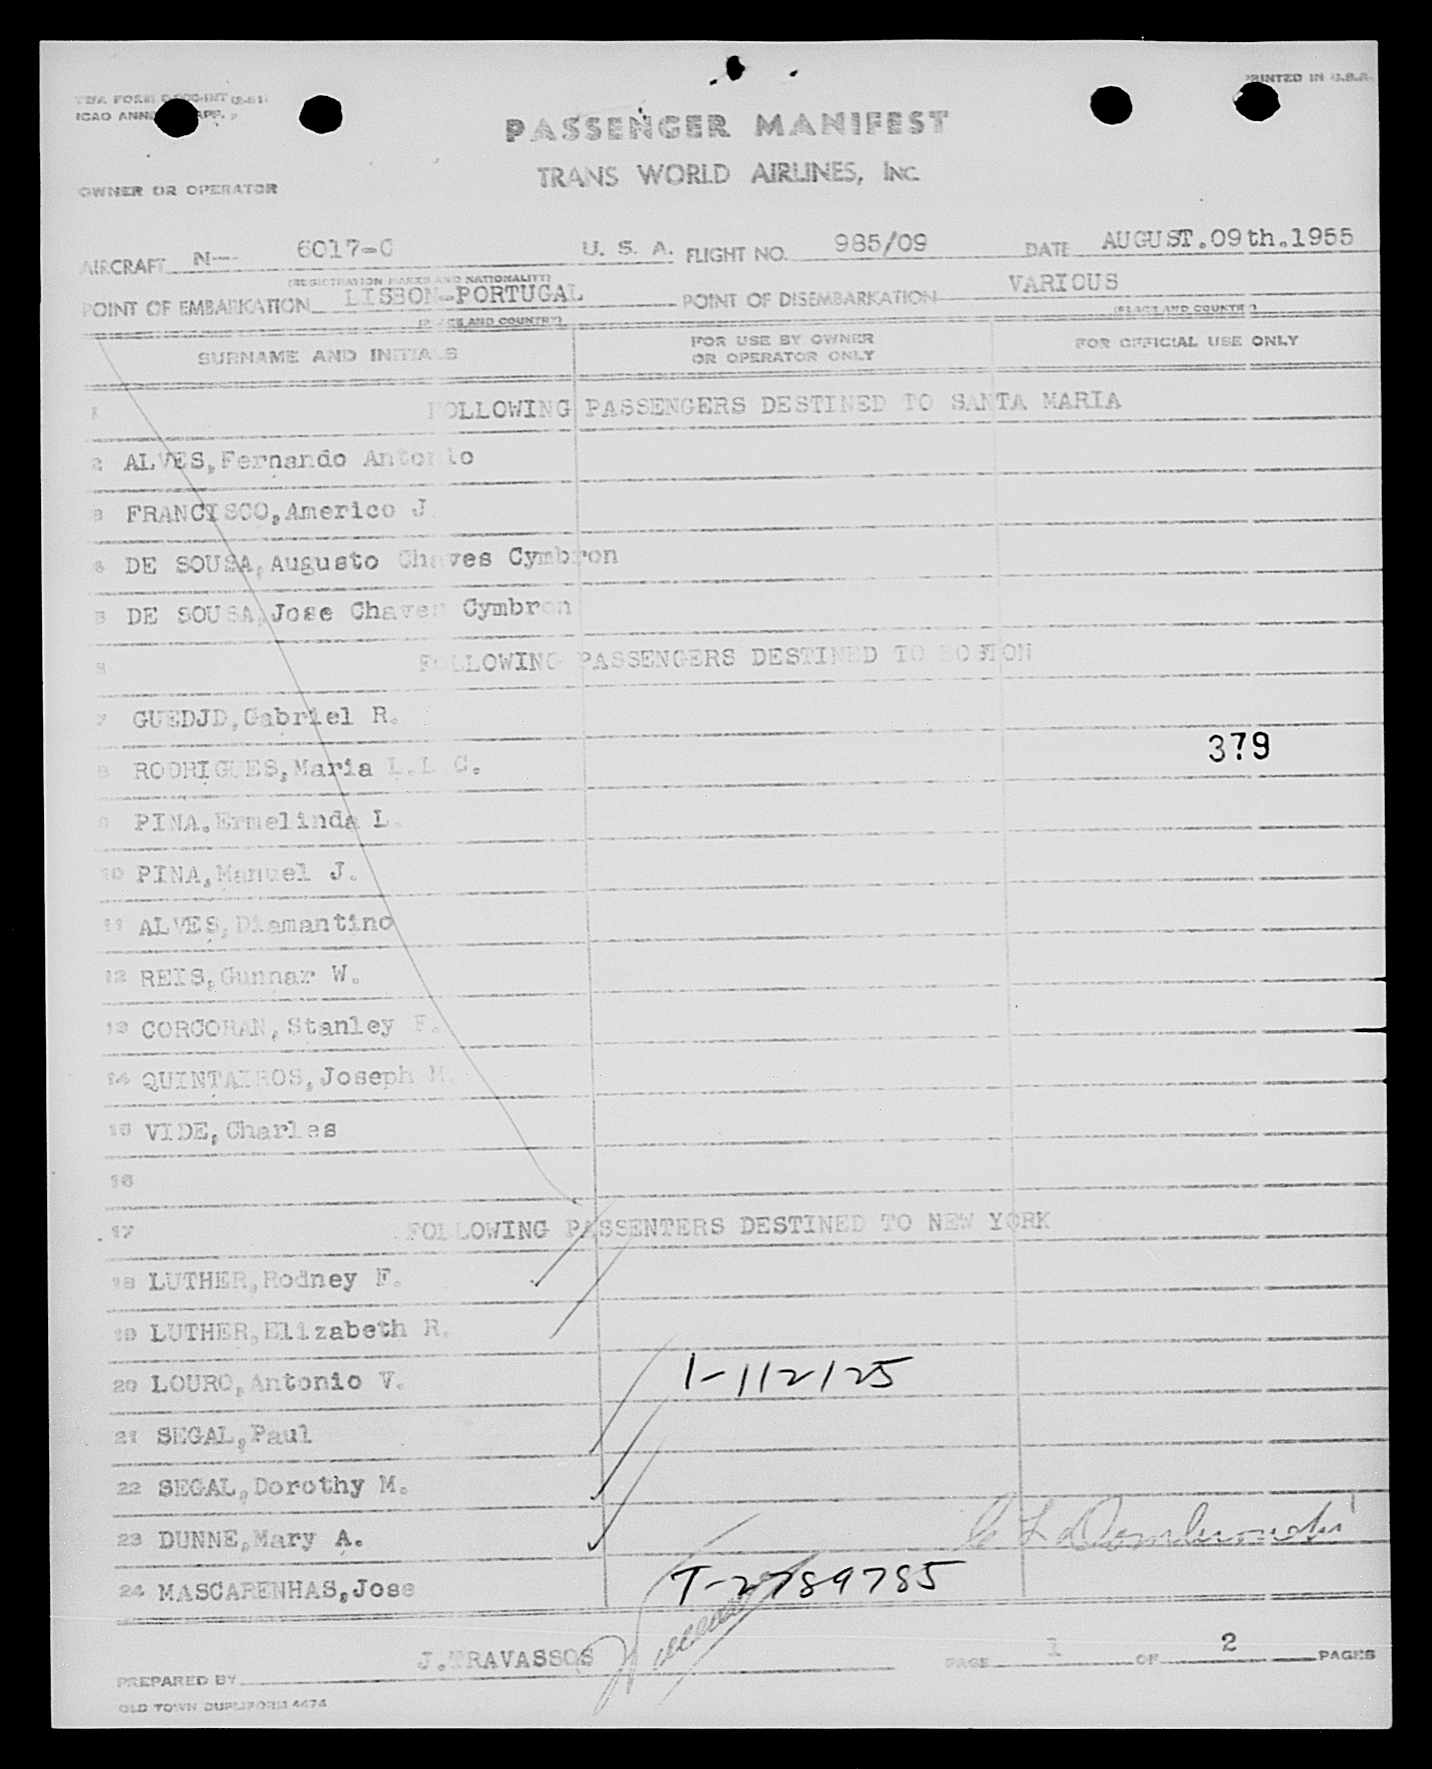 PRINTED IN U.S.A.
TWA FORM
ICAO ANNEX APP.
PASSENGER MANIFEST
TRANS WORLD AIRLINES, INC.
OWNER OR OPERATOR
AIRCRAFT N-- 6017-C U. S. A. FLIGHT NO. 985/09 DATE AUGUST.09th.1955
(REGISTRATION MARKS AND NATIONALITY)
POINT OF EMBARKATION LISBON-PORTUGAL POINT OF DISEMBARKATION VARIOUS
(PLACE AND COUNTRY) (PLACE AND COUNTRY)
SURNAME AND INITIALS FOR USE BY OWNER OR OPERATOR ONLY FOR OFFICIAL USE ONLY
1 FOLLOWING PASSENGERS DESTINED TO SANTA MARIA
2 ALVES,Fernando Antonio
3 FRANCISCO,Americo J.
4 DE SOUSA,Augusto Chaves Cymbron
5 DE SOUSA,Jose Chaves Cymbron
6 FOLLOWING PASSENGERS DESTINED TO BOSTON
7 GUEDJD,Gabriel R.
379
8 RODRIGUES,Maria L.L.C.
9 PINA.Ermelinda L.
10 PINA,Manuel J.
11 ALVES,Diamantino
12 REIS,Gunnar W.
13 CORCORAN,Stanley F.
14 QUINTAIROS,Joseph M.
15 VIDE,Charles
16
17 FOLLOWING PASSENTERS DESTINED TO NEW YORK
18 LUTHER,Rodney F.
19 LUTHER,Elizabeth R.
20 LOURO,Antonio V. 1-112125
21 SEGAL,Paul
22 SEGAL,Dorothy M.
23 DUNNE,Mary A.
24 MASCARENHAS,Jose T-2789785
PREPARED BY J.TRAVASSOS PAGE 1 OF 2 PAGES
OLD TOWN DUPLIFORM 4474